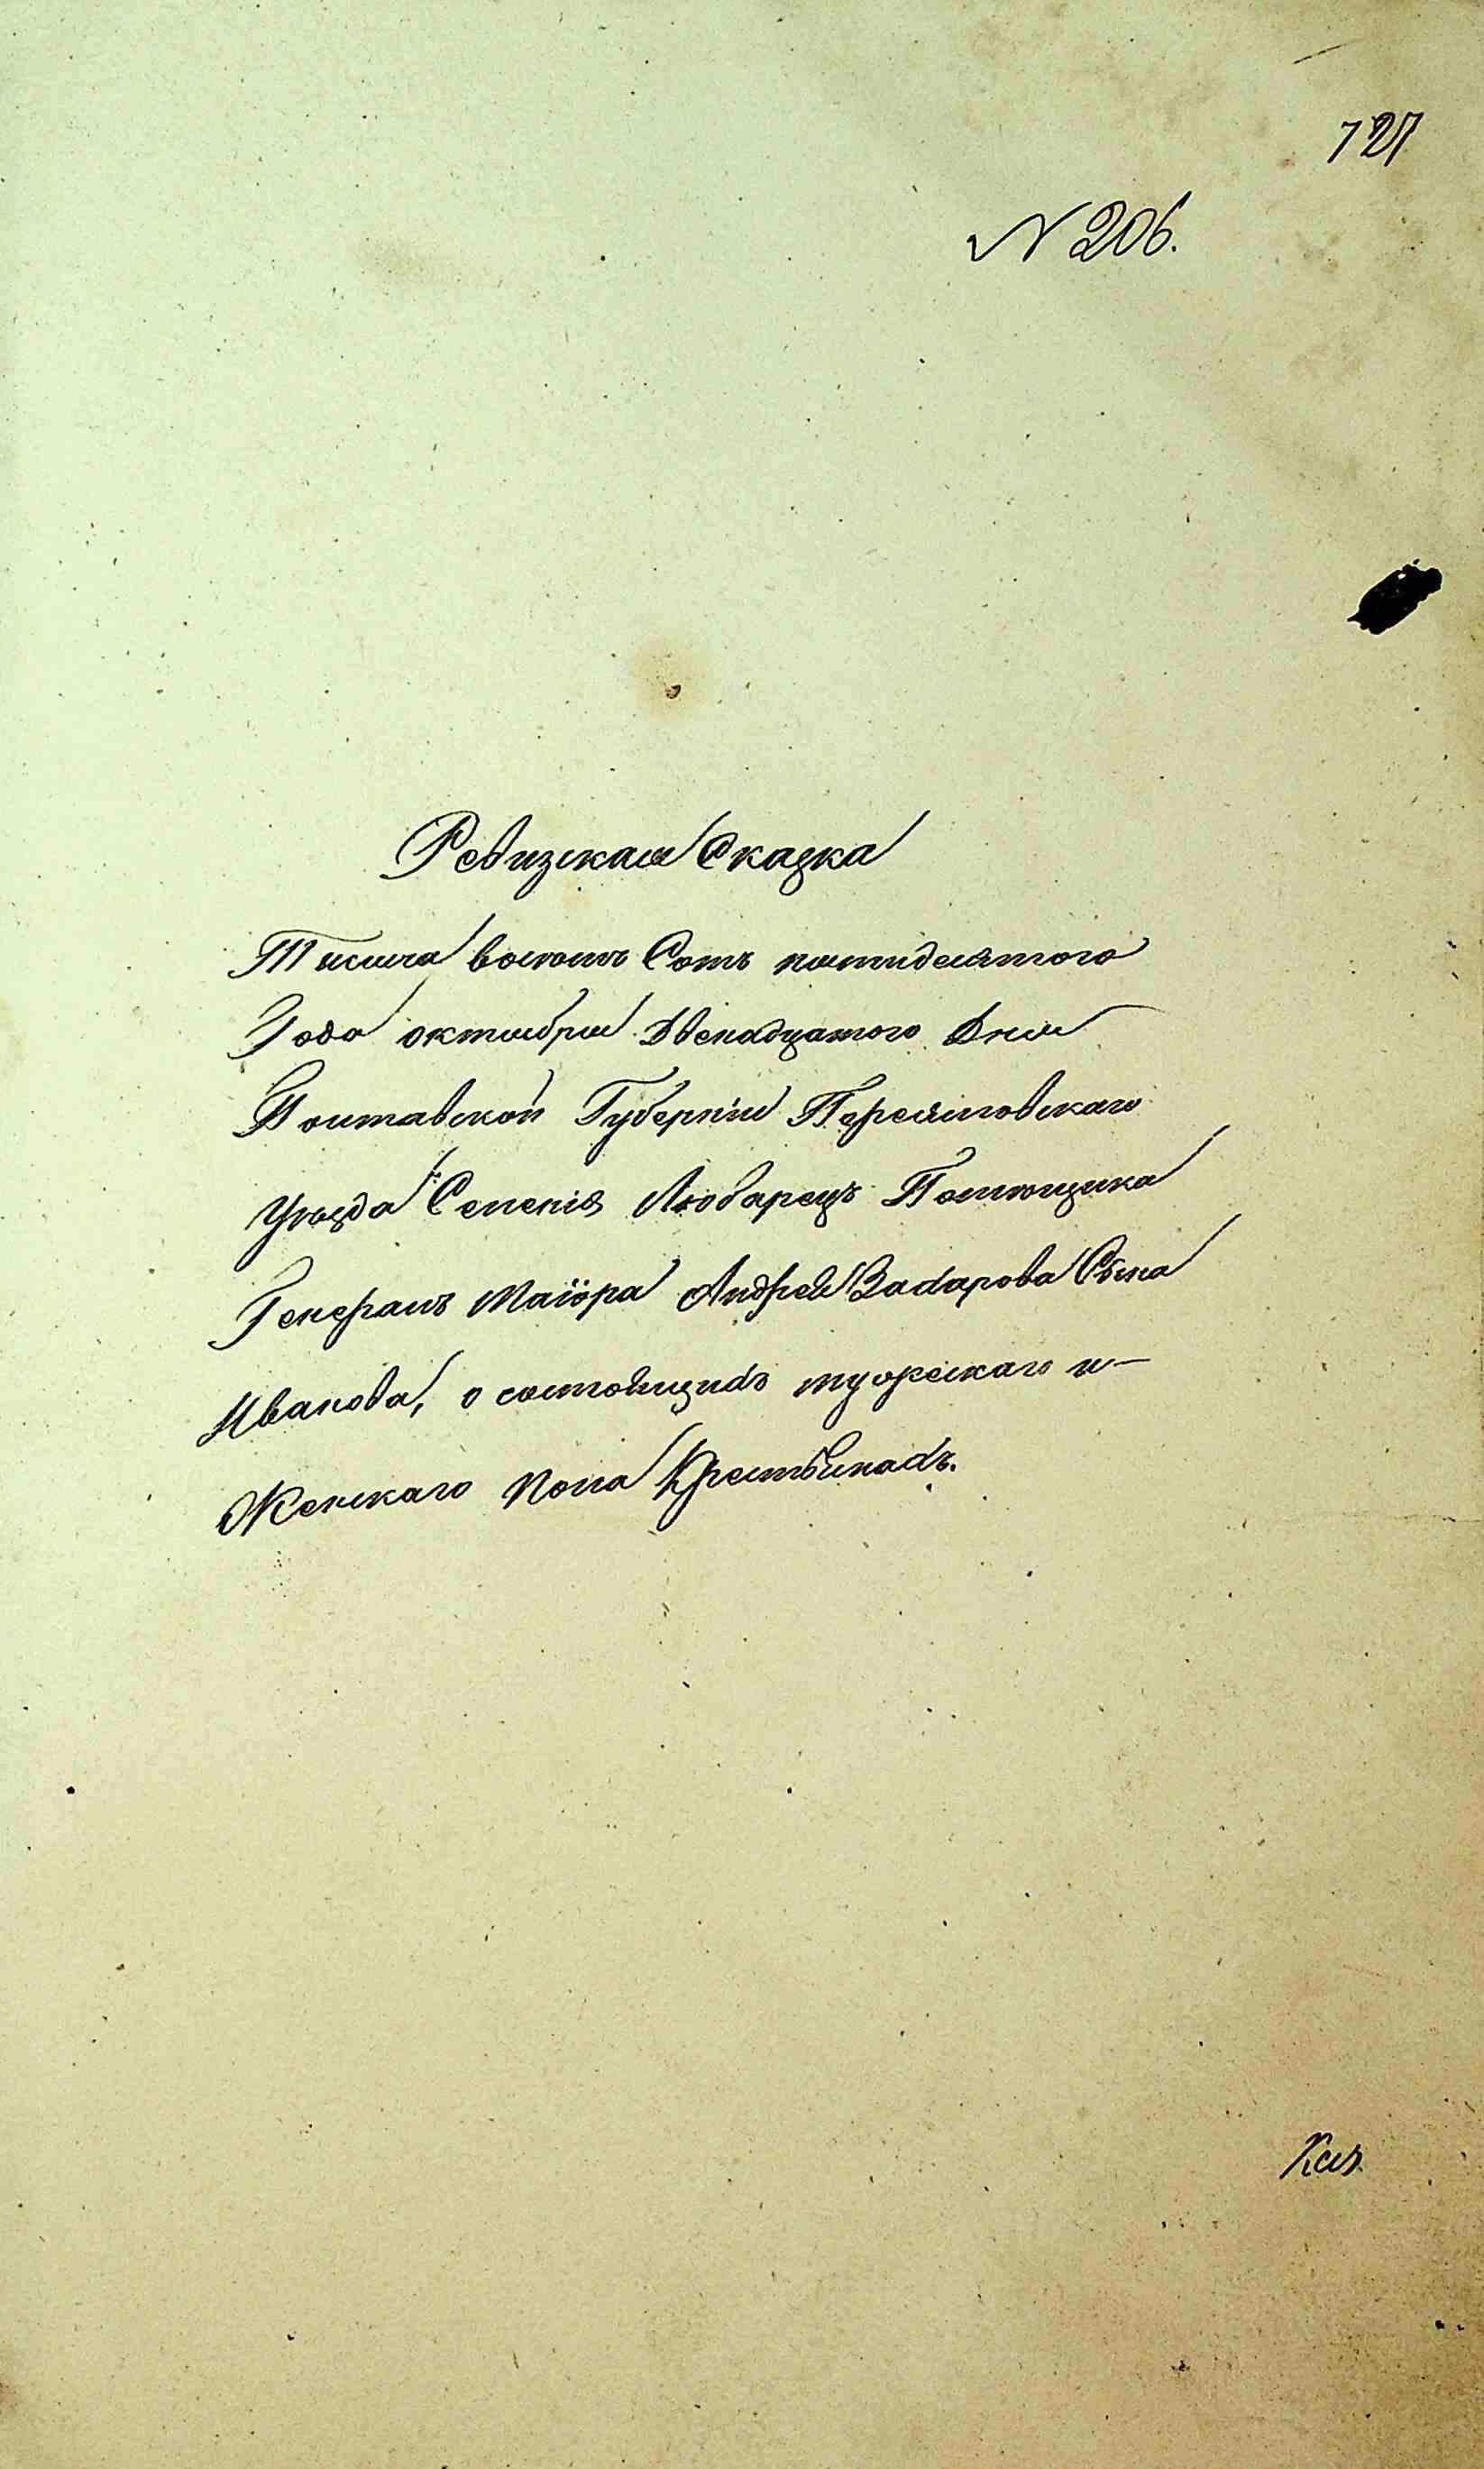 727
N 206.
Ревизская Сказка
Тысяча восемь Сотъ пятидесятого
Года октября Двенадцатого Дня
Полтавской Губерніи Переясловскаго
Уезда Селенія Любарецъ Помещика
Генералъ Маіора Андрея Захарова Сына
Иванова, о состоящихъ мужескаго и
Женскаго пола Крестьянахъ.